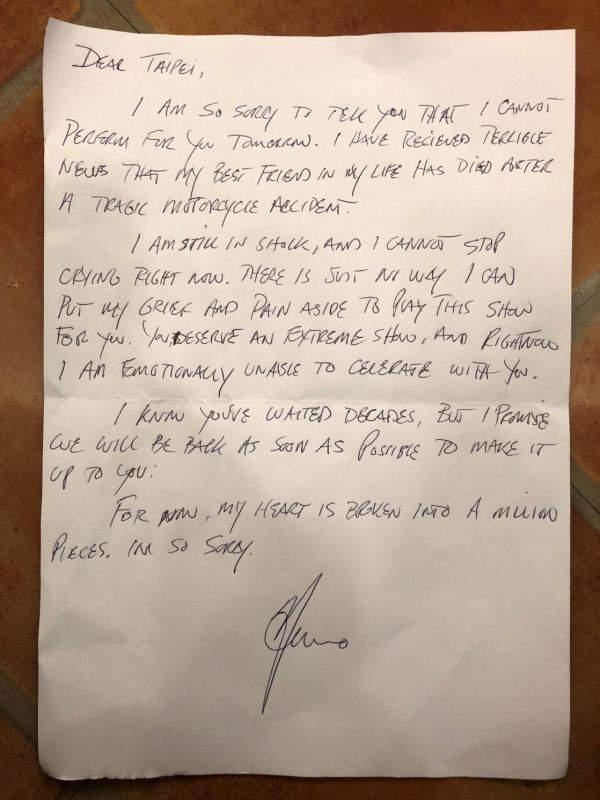 DEAR TAIPEI,
I AM SO SORRY TO TELL YOU THAT I CANNOT
PERFORM FOR YOU TOMORROW. I HAVE RECIEVED TERRIBLE
NEWS THAT MY BEST FRIEND IN MY LIFE HAS DIED AFTER
A TRAGIC MOTORCYCLE ACCIDENT.
I AM STILL IN SHOCK, AND I CANNOT STOP
CRYING RIGHT NOW. THERE IS JUST NO WAY I CAN
PUT MY GRIEF AND PAIN ASIDE TO PLAY THIS SHOW
FOR YOU. YOU DESERVE AN EXTREME SHOW, AND RIGHT NOW
I AM EMOTIONALLY UNABLE TO CELEBRATE WITH YOU.
I KNOW YOU'VE WAITED DECADES, BUT I PROMISE
WE WILL BE BACK AS SOON AS POSSIBLE TO MAKE IT
UP TO YOU.
FOR NOW, MY HEART IS BROKEN INTO A MILLION
PIECES. IM SO SORRY.